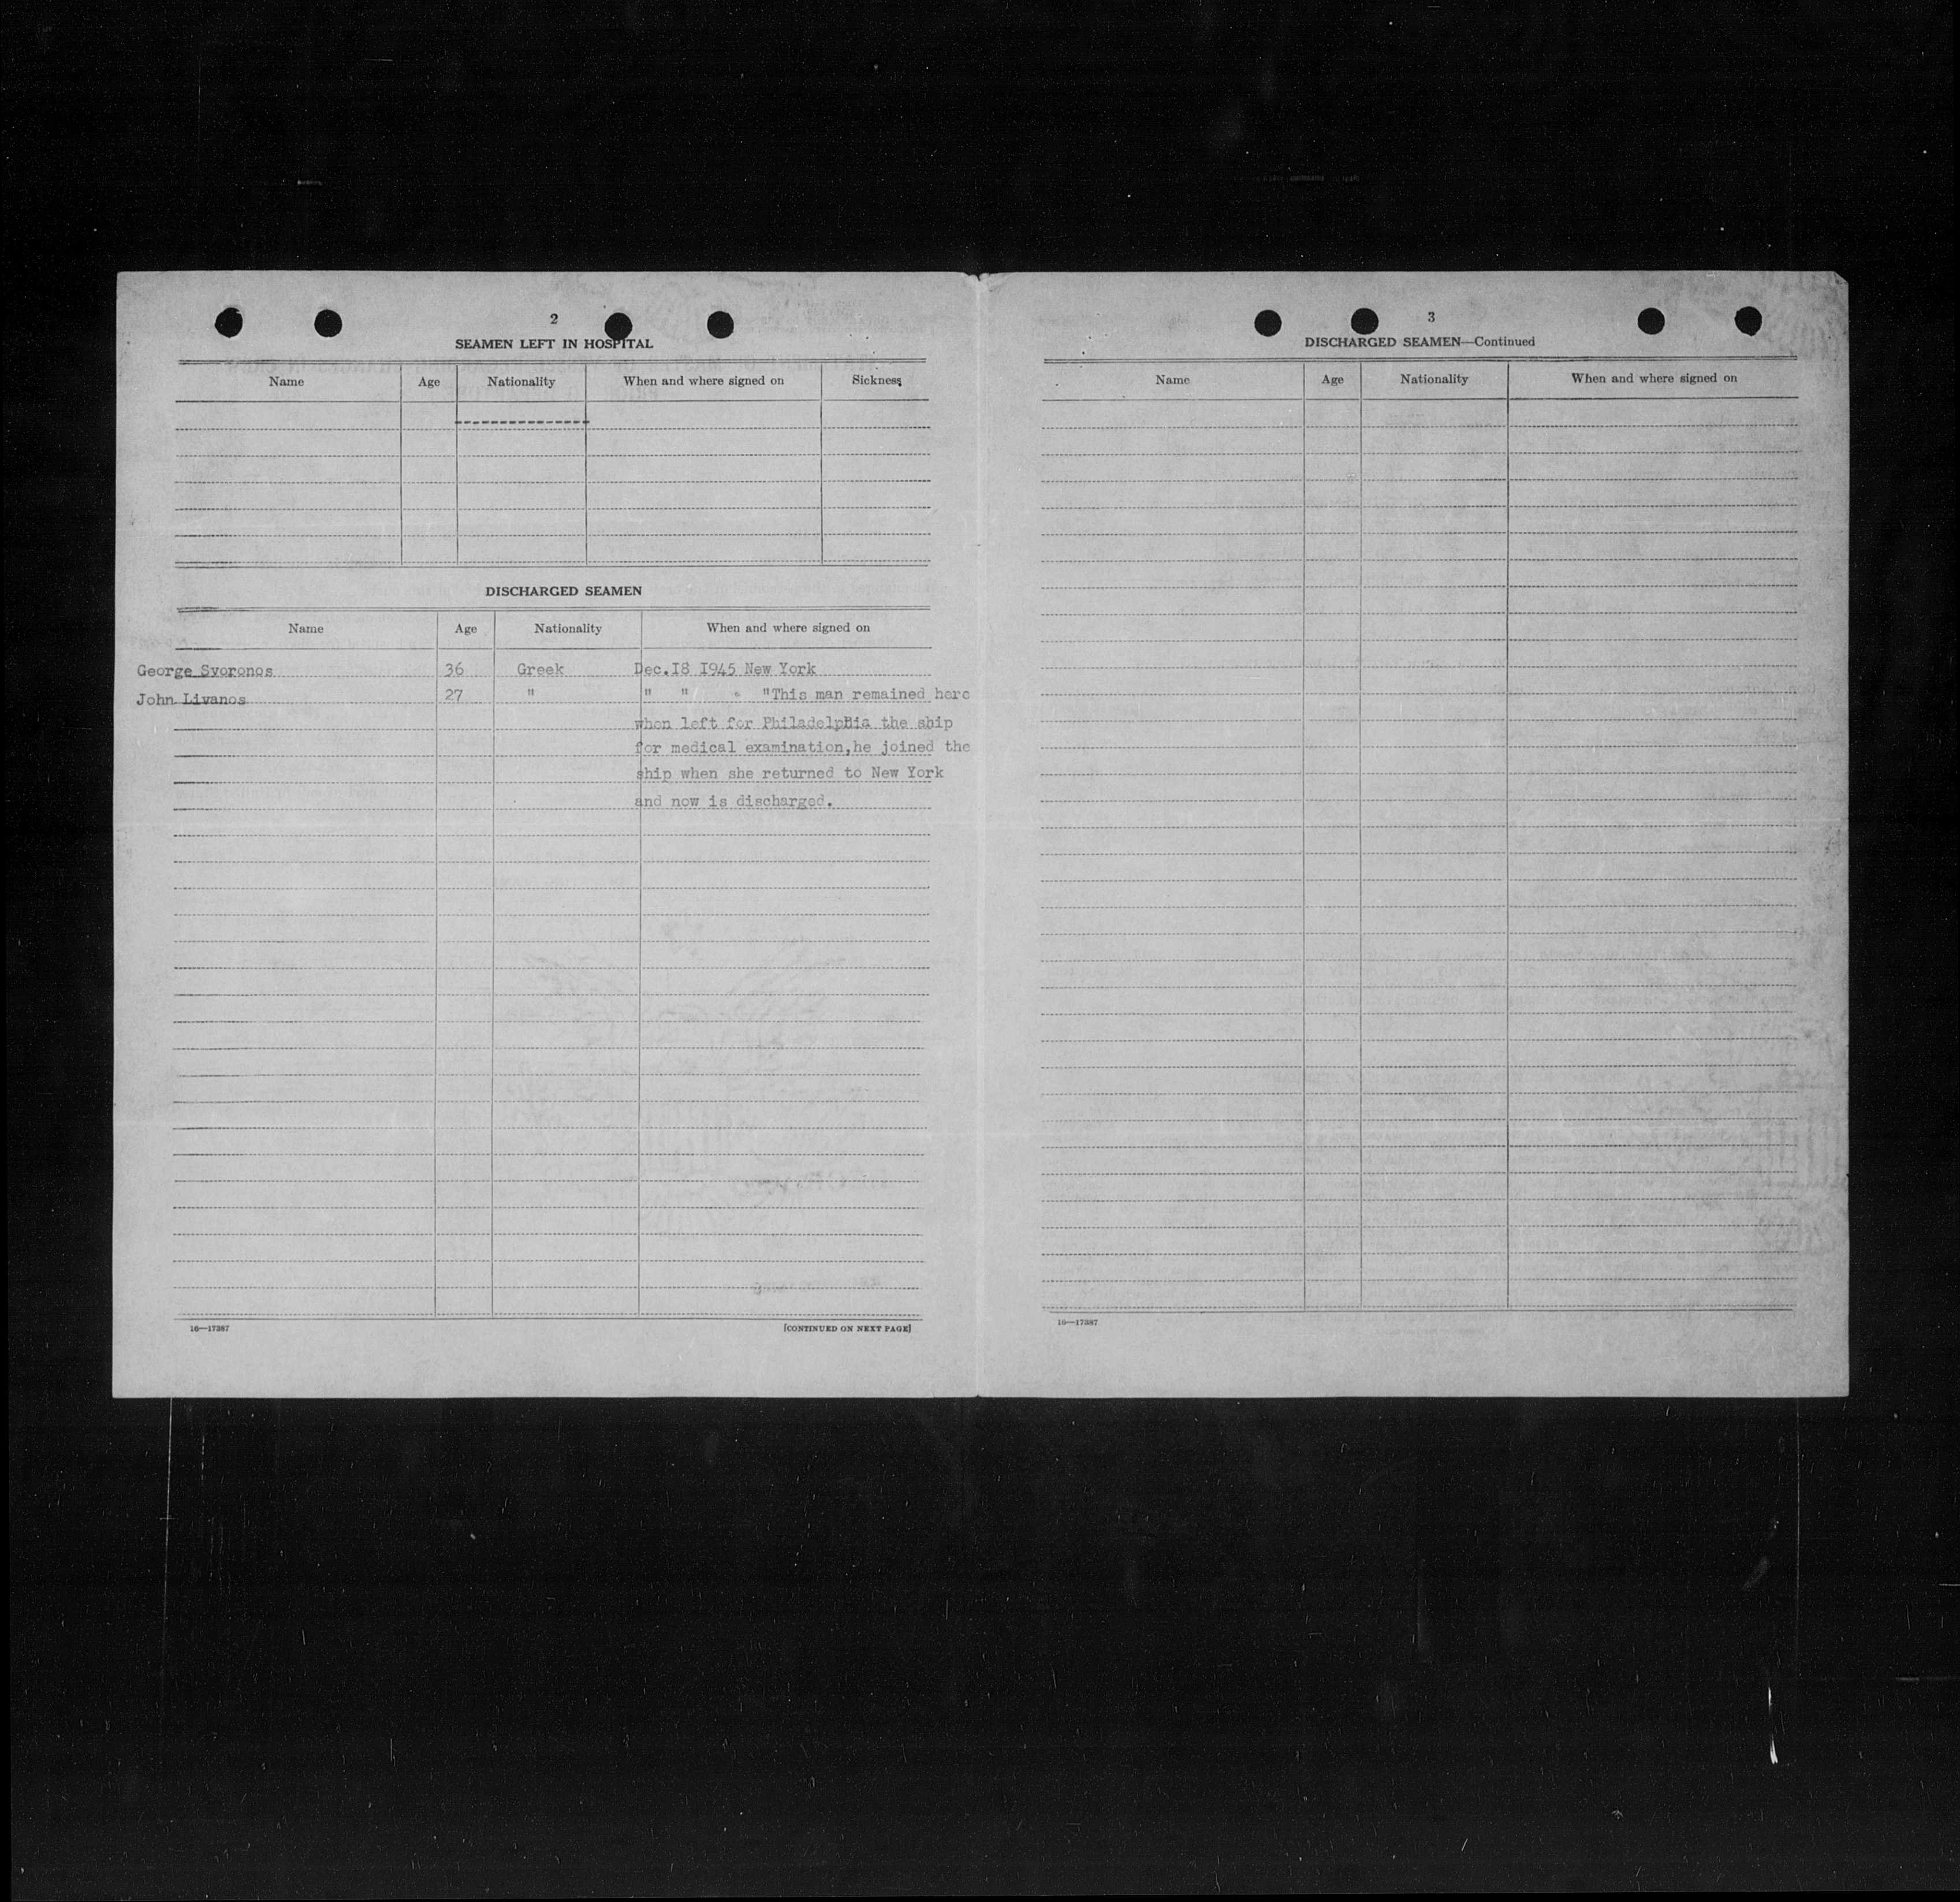 2
SEAMEN LEFT IN HOSPITAL
Name Age Nationality When and where signed on Sickness
DISCHARGED SEAMEN
Name Age Nationality When and where signed on
George Svoronos 36 Greek Dec.I8 I945 New York
John Livanos 27 " " " " "This man remained here
when left for Philadelphia the ship
for medical examination,he joined the
ship when she returned to New York
and now is discharged.
16—17387 [CONTINUED ON NEXT PAGE]
3
DISCHARGED SEAMEN—Continued
Name Age Nationality When and where signed on
16—17387